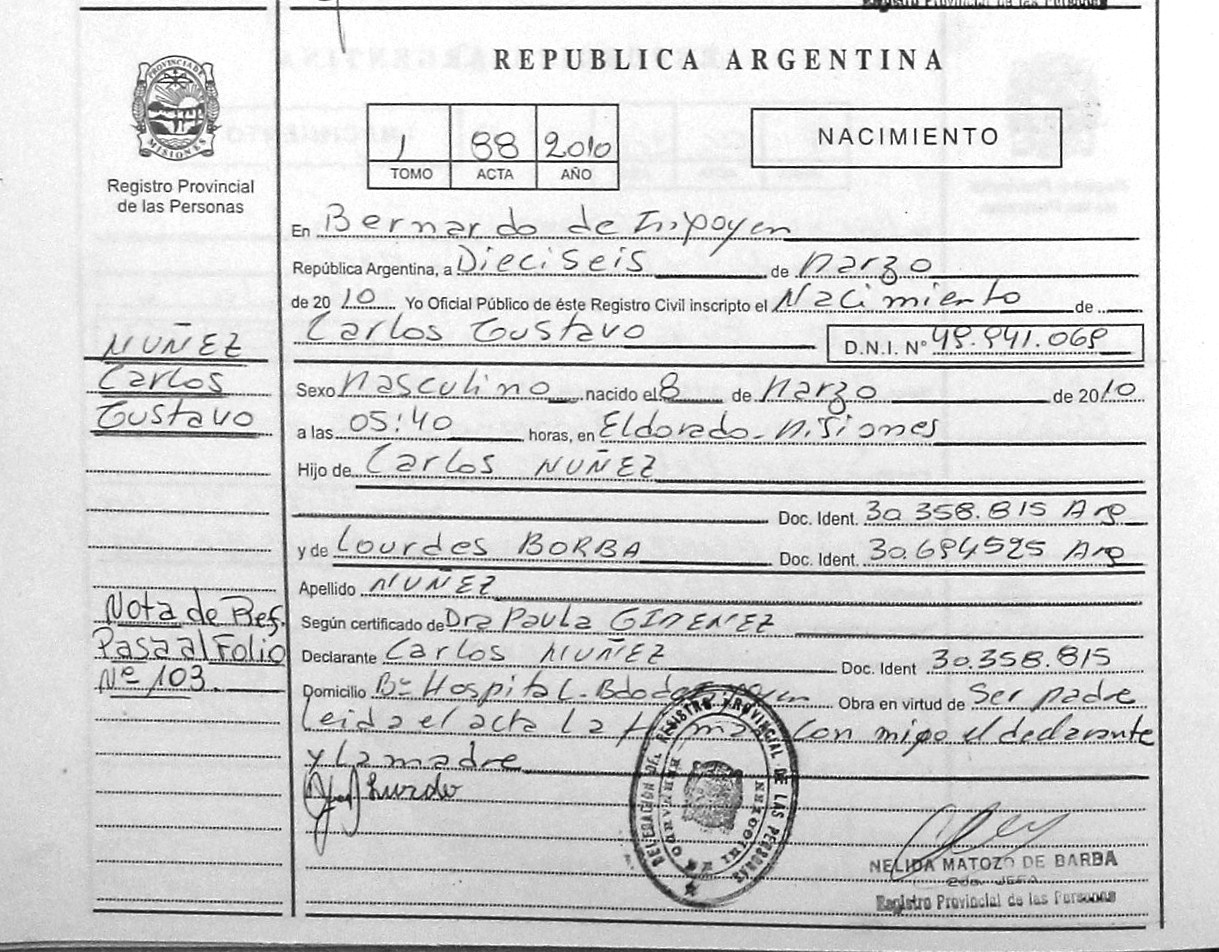 Registro Provincial de las Personas
REPUBLICA ARGENTINA
PROVINCIA DE
MISIONES
Registro Provincial
de las Personas
1 88 2010
TOMO ACTA AÑO
NACIMIENTO
En Bernardo de Irigoyen
República Argentina, a Dieciseis de Marzo
de 2010 Yo Oficial Público de éste Registro Civil inscripto el Nacimiento de
Carlos Gustavo D.N.I. Nº
NUÑEZ
Carlos
Gustavo
Sexo Masculino nacido el 8 de Marzo de 2010
a las 05:40 horas, en Eldorado - Misiones
Hijo de Carlos NUÑEZ
Doc. Ident. 30.358.815 Arg
y de Lourdes BORBA Doc. Ident. Arg
Apellido NUÑEZ
Según certificado de Dra Paula GIMENEZ
Declarante Carlos NUÑEZ Doc. Ident 30.358.815
Domicilio Bº Hospital - Bdo de Irigoyen Obra en virtud de Ser padre
Leida el acta la con migo el declarante
y la madre
Nota de Ref.
Pasa al Folio
Nº 103.
DELEGACION DEL REGISTRO PROVINCIAL DE LAS PERSONAS
BERNARDO
IRIGOYEN
NELIDA MATOZO DE BARBA
2da. JEFA
Registro Provincial de las Personas